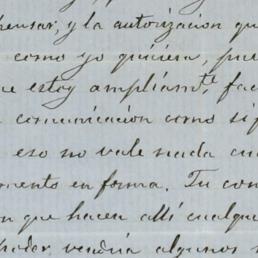 pensar, y la autorizacion qu
como yo quiera, pue
e estoy ampliamte, fac
comunicacion como si f
eso no vale nada cua
mento en forma. Tu con
on que hacen allí cualqu
poder, vendria algunos